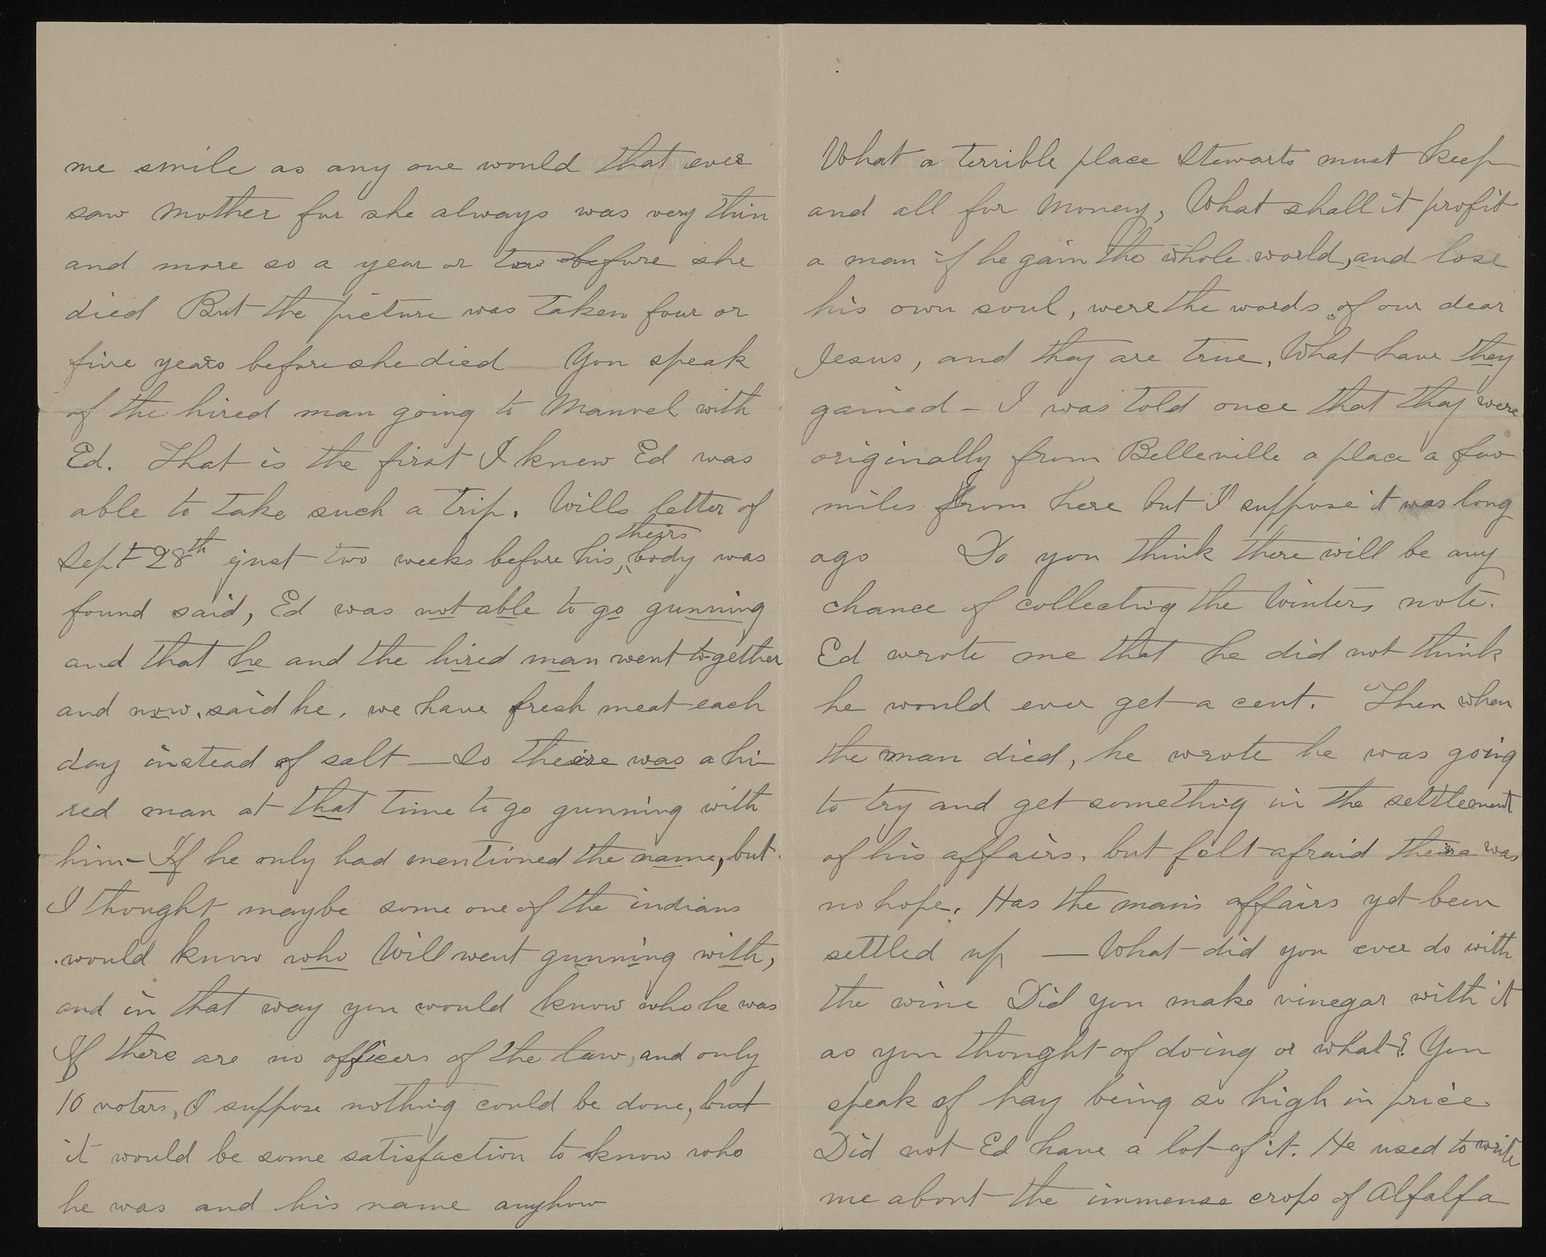 me smile as any one would that ever
saw Mother for she always was very thin
and more so a year or two before she
died But the picture was taken four or
five years before she died You speak
of the hired man going to Manvel with
Ed. That is the first I knew Ed was
able to take such a trip. Wills letter of
theirs
Sept 28th just two weeks before his, body was
found said, Ed was not able to go gunning
and that he and the hired man went together
and now, said he, we have fresh meat each
day instead of salt — So there was a hi-
red man at that time to go gunning with
him — If he only had mentioned the name, but
I thought maybe some one of the indians
would know who Will went gunning with,
and in that way you would know who he was
If there are no officers of the law, and only
10 voters, I suppose nothing could be done, but
it would be some satisfaction to know who
he was and his name anyhow
What a terrible place Stewarts must keep
and all for Money, What shall it profit
a man if he gain the whole world, and lose
his own soul, were the words of our dear
Jesus, and they are true, What have they
gained — I was told once that they were
originally from Belleville a place a few
miles from here but I suppose it was long
ago Do you think there will be any
chance of collecting the Winters note.
Ed wrote me that he did not think
he would ever get a cent. Then when
the man died, he wrote he was going
to try and get something in the settlement
of his affairs, but felt afraid there was
no hope. Has the man's affairs yet been
settled up — What did you ever do with
the wine Did you make vinegar with it
as you thought of doing or what? You
speak of hay being so high in price
Did not Ed have a lot of it. He used to write
me about the immense crops of Alfalfa